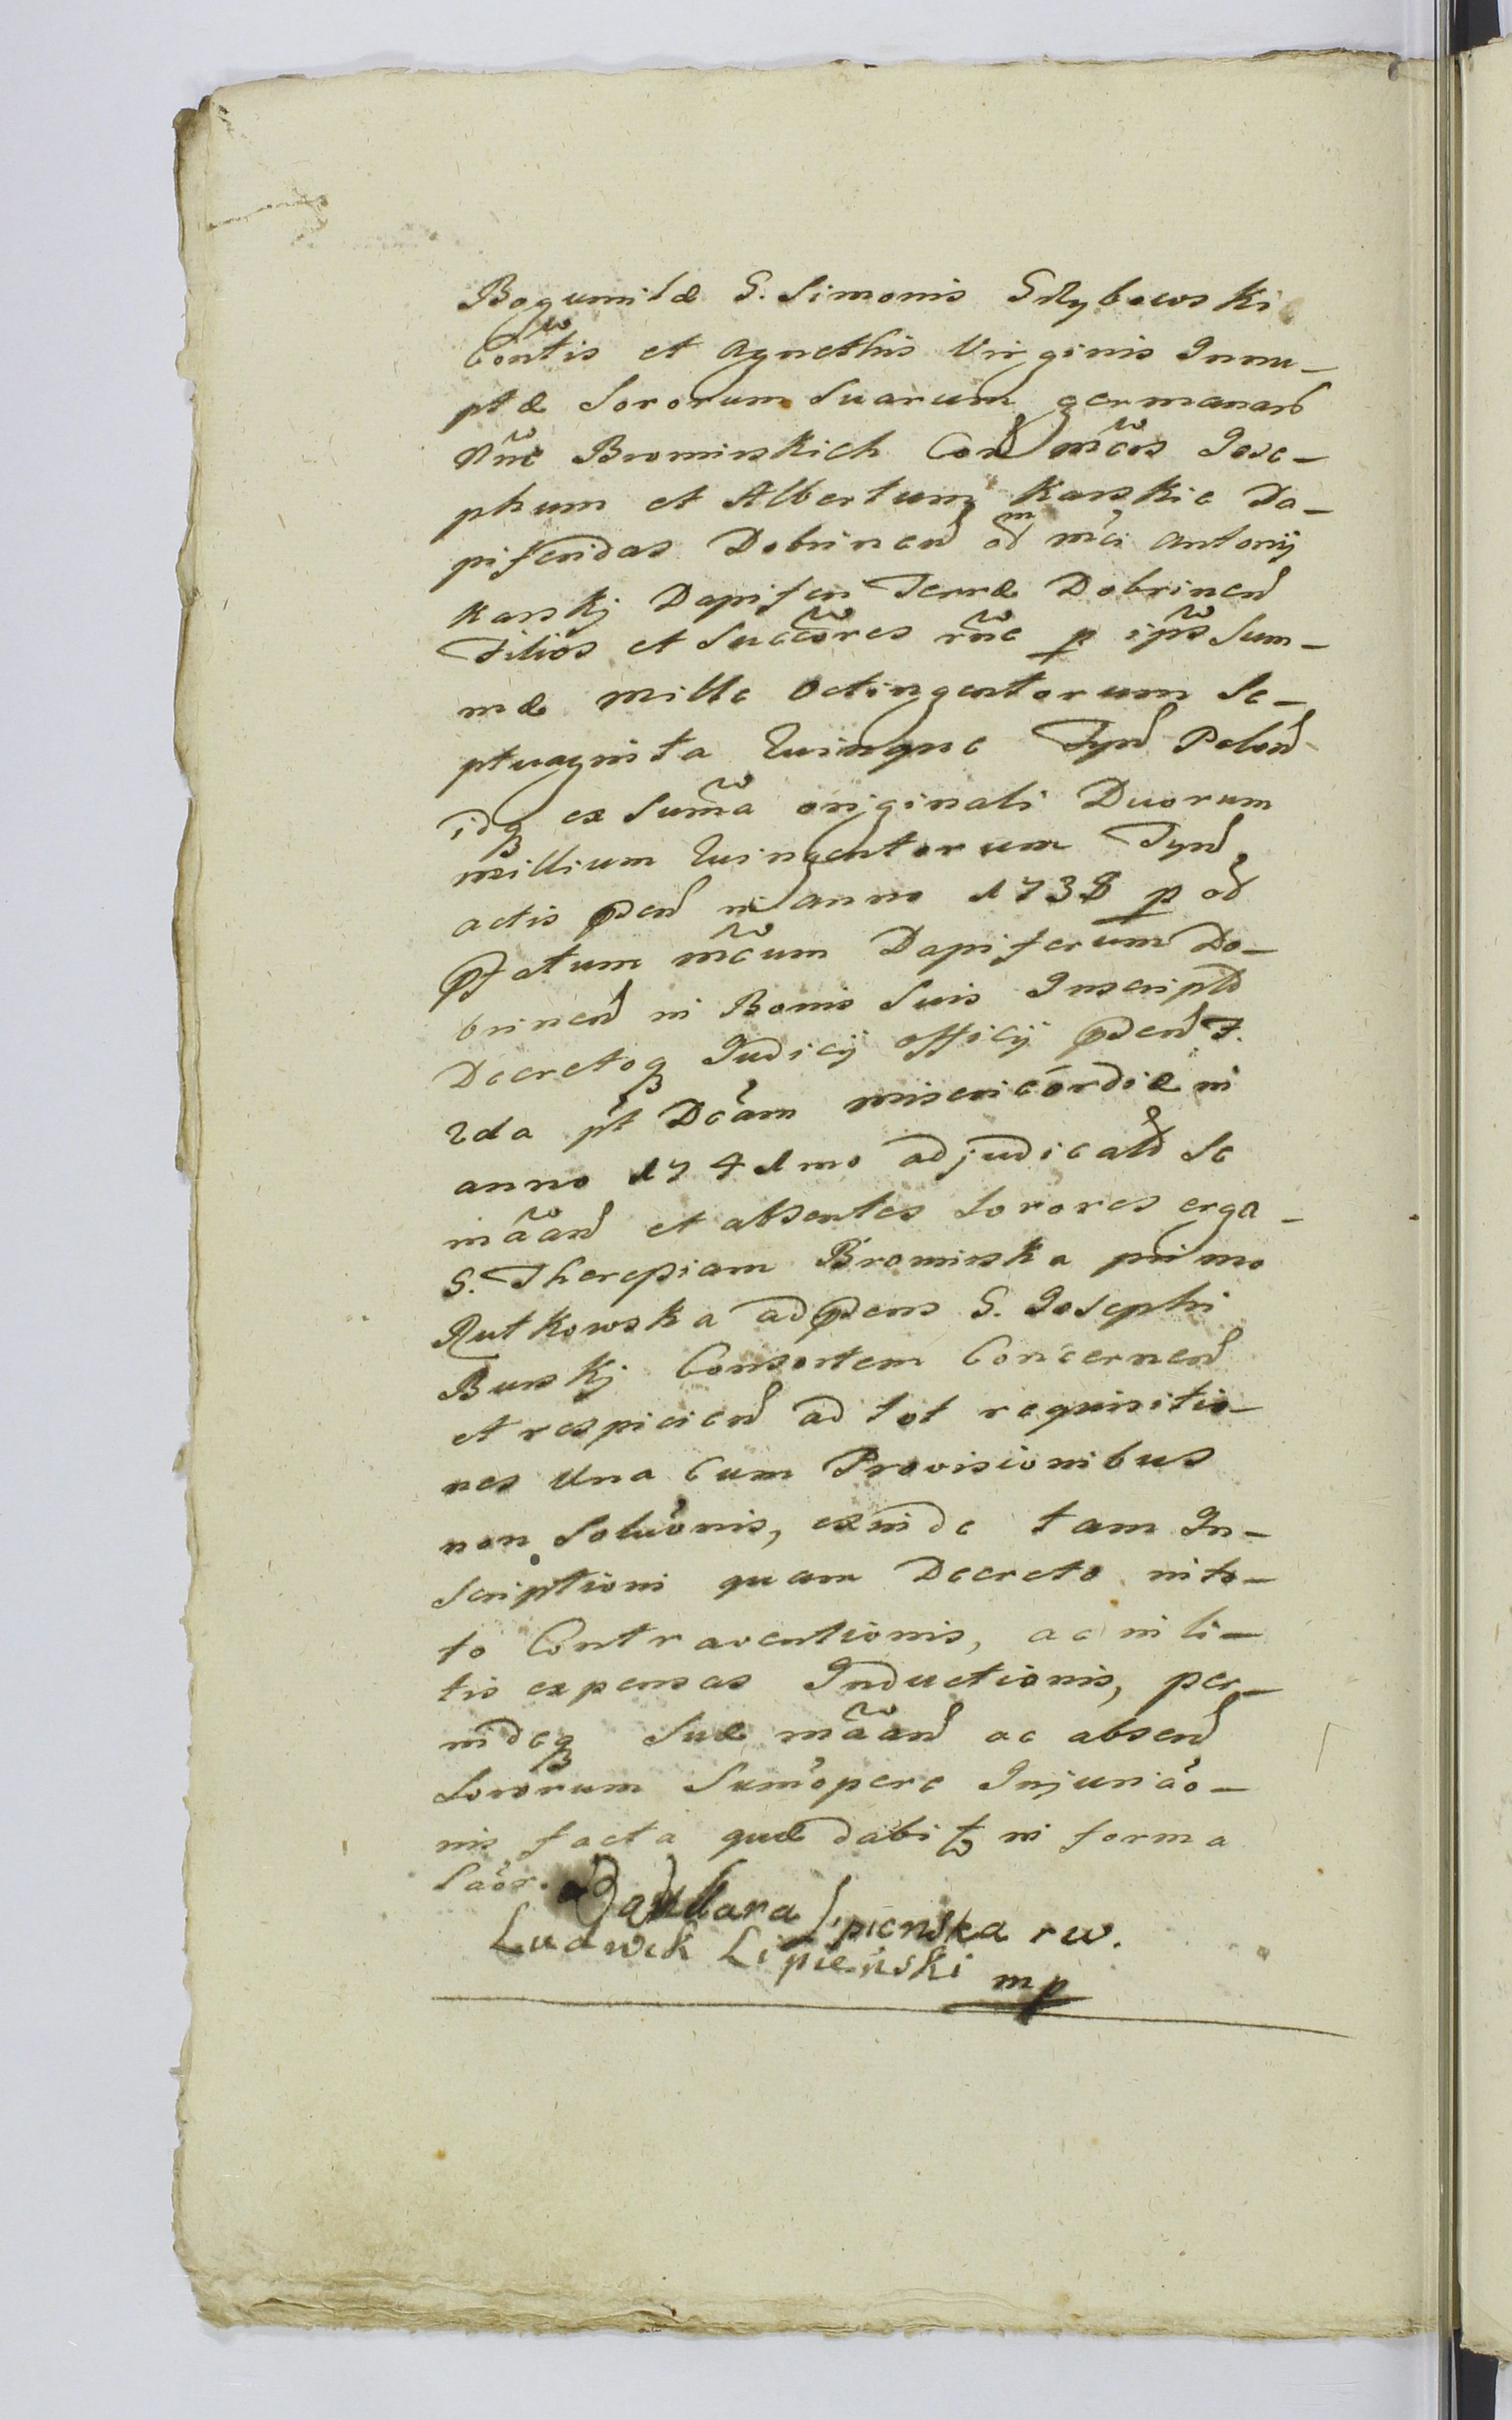 Bogumilæ G. Simonis Grzybowski
Contis et Agnethis Virginis Innu-
ptæ Sororum Suarum germanar
Nnc Brominskich Con mcos Jose-
phum et Albertum Karskie Da-
piferidas Dobrinen od mci Antonij
Karskj Dapiferi Terræ Dobrinen
Filios et Succores rnc p ipsi Sum-
mæ Mille Octingentorum Se-
ptuaginta Quinque Tyn Polon
idq ex Suma originali Duorum
millium Quingentorum Tyn
actis pden in anno 1738 p od
pfatum mcum Dapiferum Do-
brinen in Bonis Suis Inscript
Decretoq Judicij Officij pden F.
2da pt Dcam misericordiæ in
anno 1741mo adjudicat Se
maan et absentes Sorores erga
G. Theresiam Brominska primo
Rutkowska ad pdens G. Josephi
Burskj Consortem Concernen
et respicien ad tot requisitio-
nes Una Cum Provisionibus
non Soluonis, exinde tam In-
scriptioni quam Decreto nito-
to Contraventionis, ac in li-
tis expensas Inductionis, per-
indeq Suæ maan ac absen
Sororum Sumopere Injuriao-
nis facta quæ dabit in forma
Saor.
Barbara Lipienska rw.
Ludwik Lipieński mp